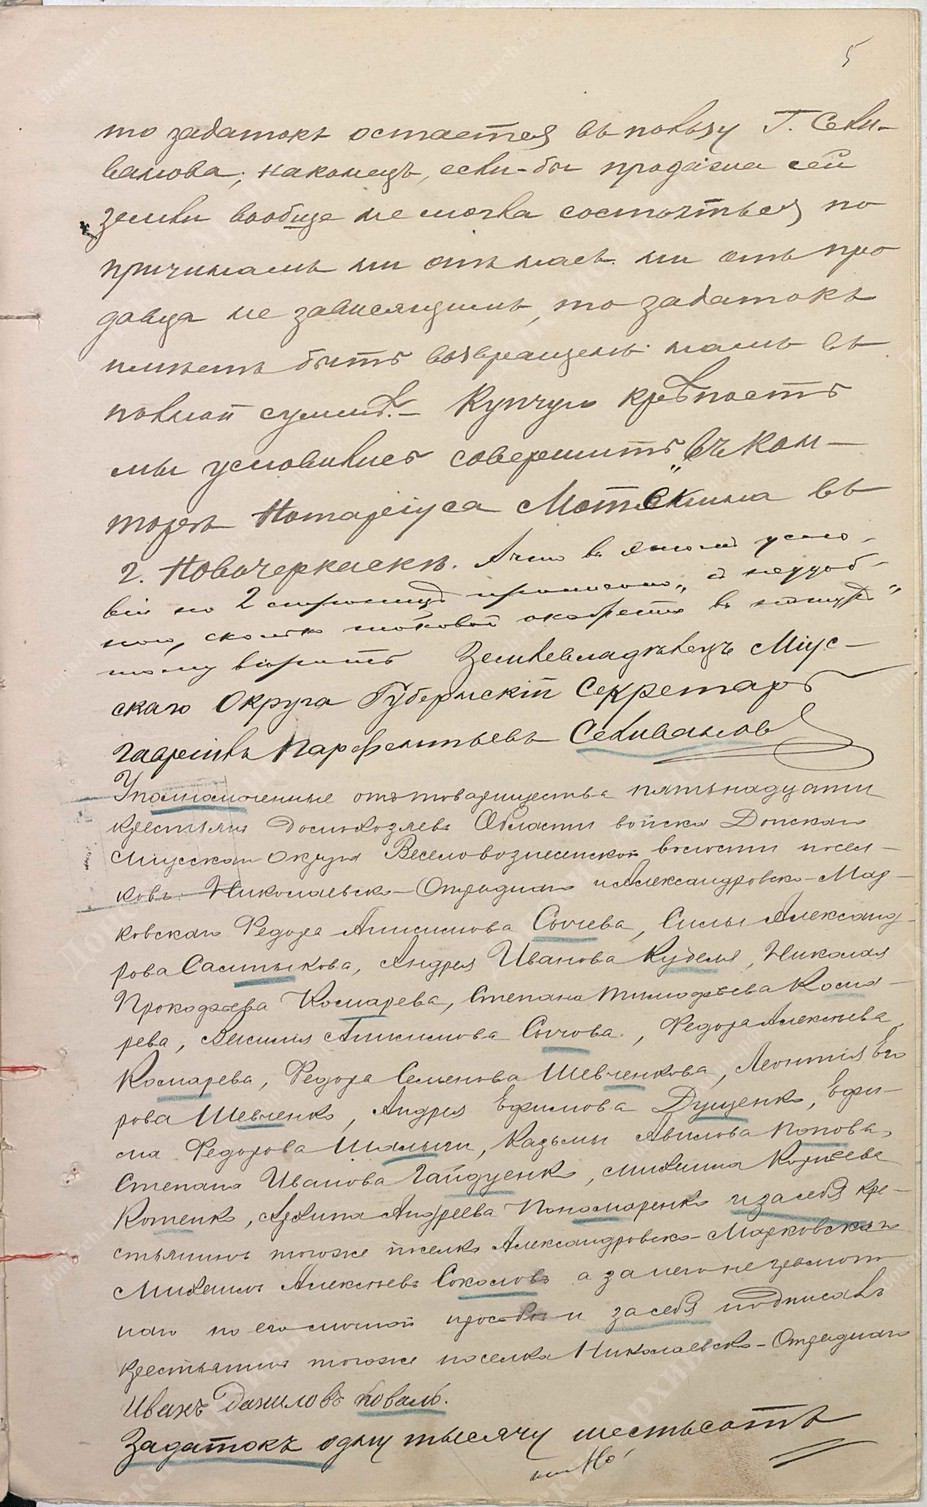 5
то задатокъ остается въ пользу Г. Сели-
ванова; наконецъ, если-бы продажа сей
земли вообще не могла состояться по
причинамъ ни отъ насъ ни отъ про
давца не зависящимъ, то задатокъ
долженъ быть возвращенъ намъ въ
полной суммѣ. – Купчую крѣпость
мы условились совершить въ кон-
торѣ Нотаріуса Мотекина въ
г. Новочеркаскѣ. А что въ этомъ усло-
віи на 2 страницѣ прописано „а неудоб-
ной, сколько таковой окажется въ натурѣ"
тому вѣрить Землевладѣлецъ Міус-
скаго Округа Губернскій Секретарь
Гавріилъ Парфентьевъ Селивановъ
Уполномоченные отъ товарищества пятьнадцати
крестьянъ домохозяевъ Области войска Донскаго
Міусскаго Округа Веселовознесенской волости посел-
ковъ Николаевско-Отраднаго и Александровско-Мар-
ковскаго Федора Анисимова Сычева, Силы Александ-
рова Салтыкова, Андрея Иванова Куделя, Николая
Прокофьева Комарева, Степана Тимофѣева Кома-
рева, Василия Анисимова Сычова, Федора Алексѣева
Комарева, Федора Семенова Шевченкова, Леонтія Его
рова Шевченко, Андрея Ефимова Дущенко, Ефи-
ма Федорова Шалыги, Казьмы Авилова Попова,
Степана Иванова Гайдуенко, Михаила Корнѣева
Котенко, Андреева Пономаренко и за себя кре-
стьянинъ тогоже поселка Александровско-Марковскаго
Михаилъ Алексѣевъ Соколовъ а за него неграмот
наго по его личной просьбѣ и за себя подписалъ
крестьянинъ тогоже поселка Николаевско-Отраднаго
Иванъ Даниловъ Коваль.
Задатокъ одну тысячу шестьсотъ